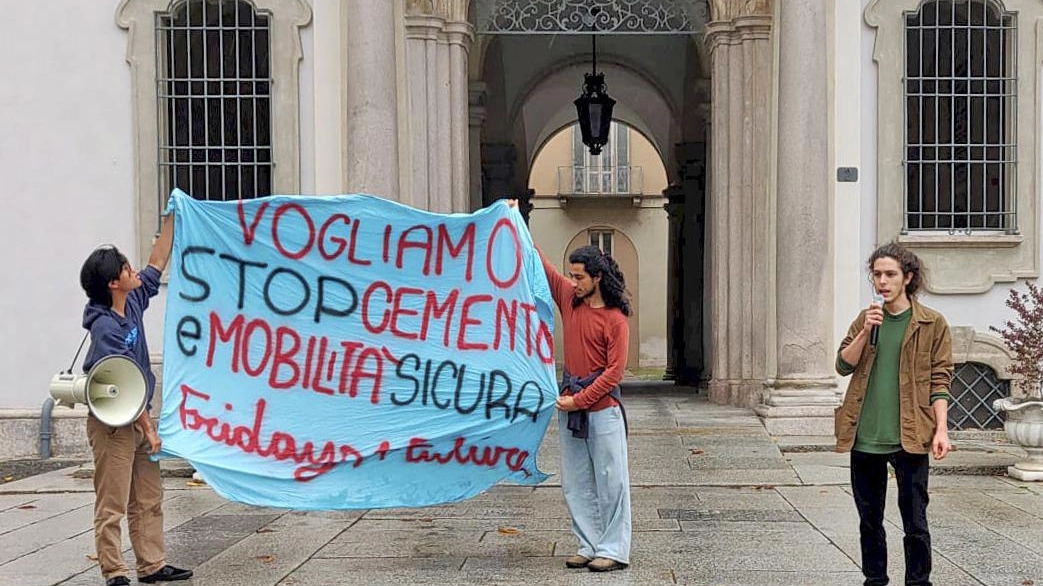 VOGLIAMO
STOP CEMENTO
e MOBILITÀ SICURA
Fridays + Future